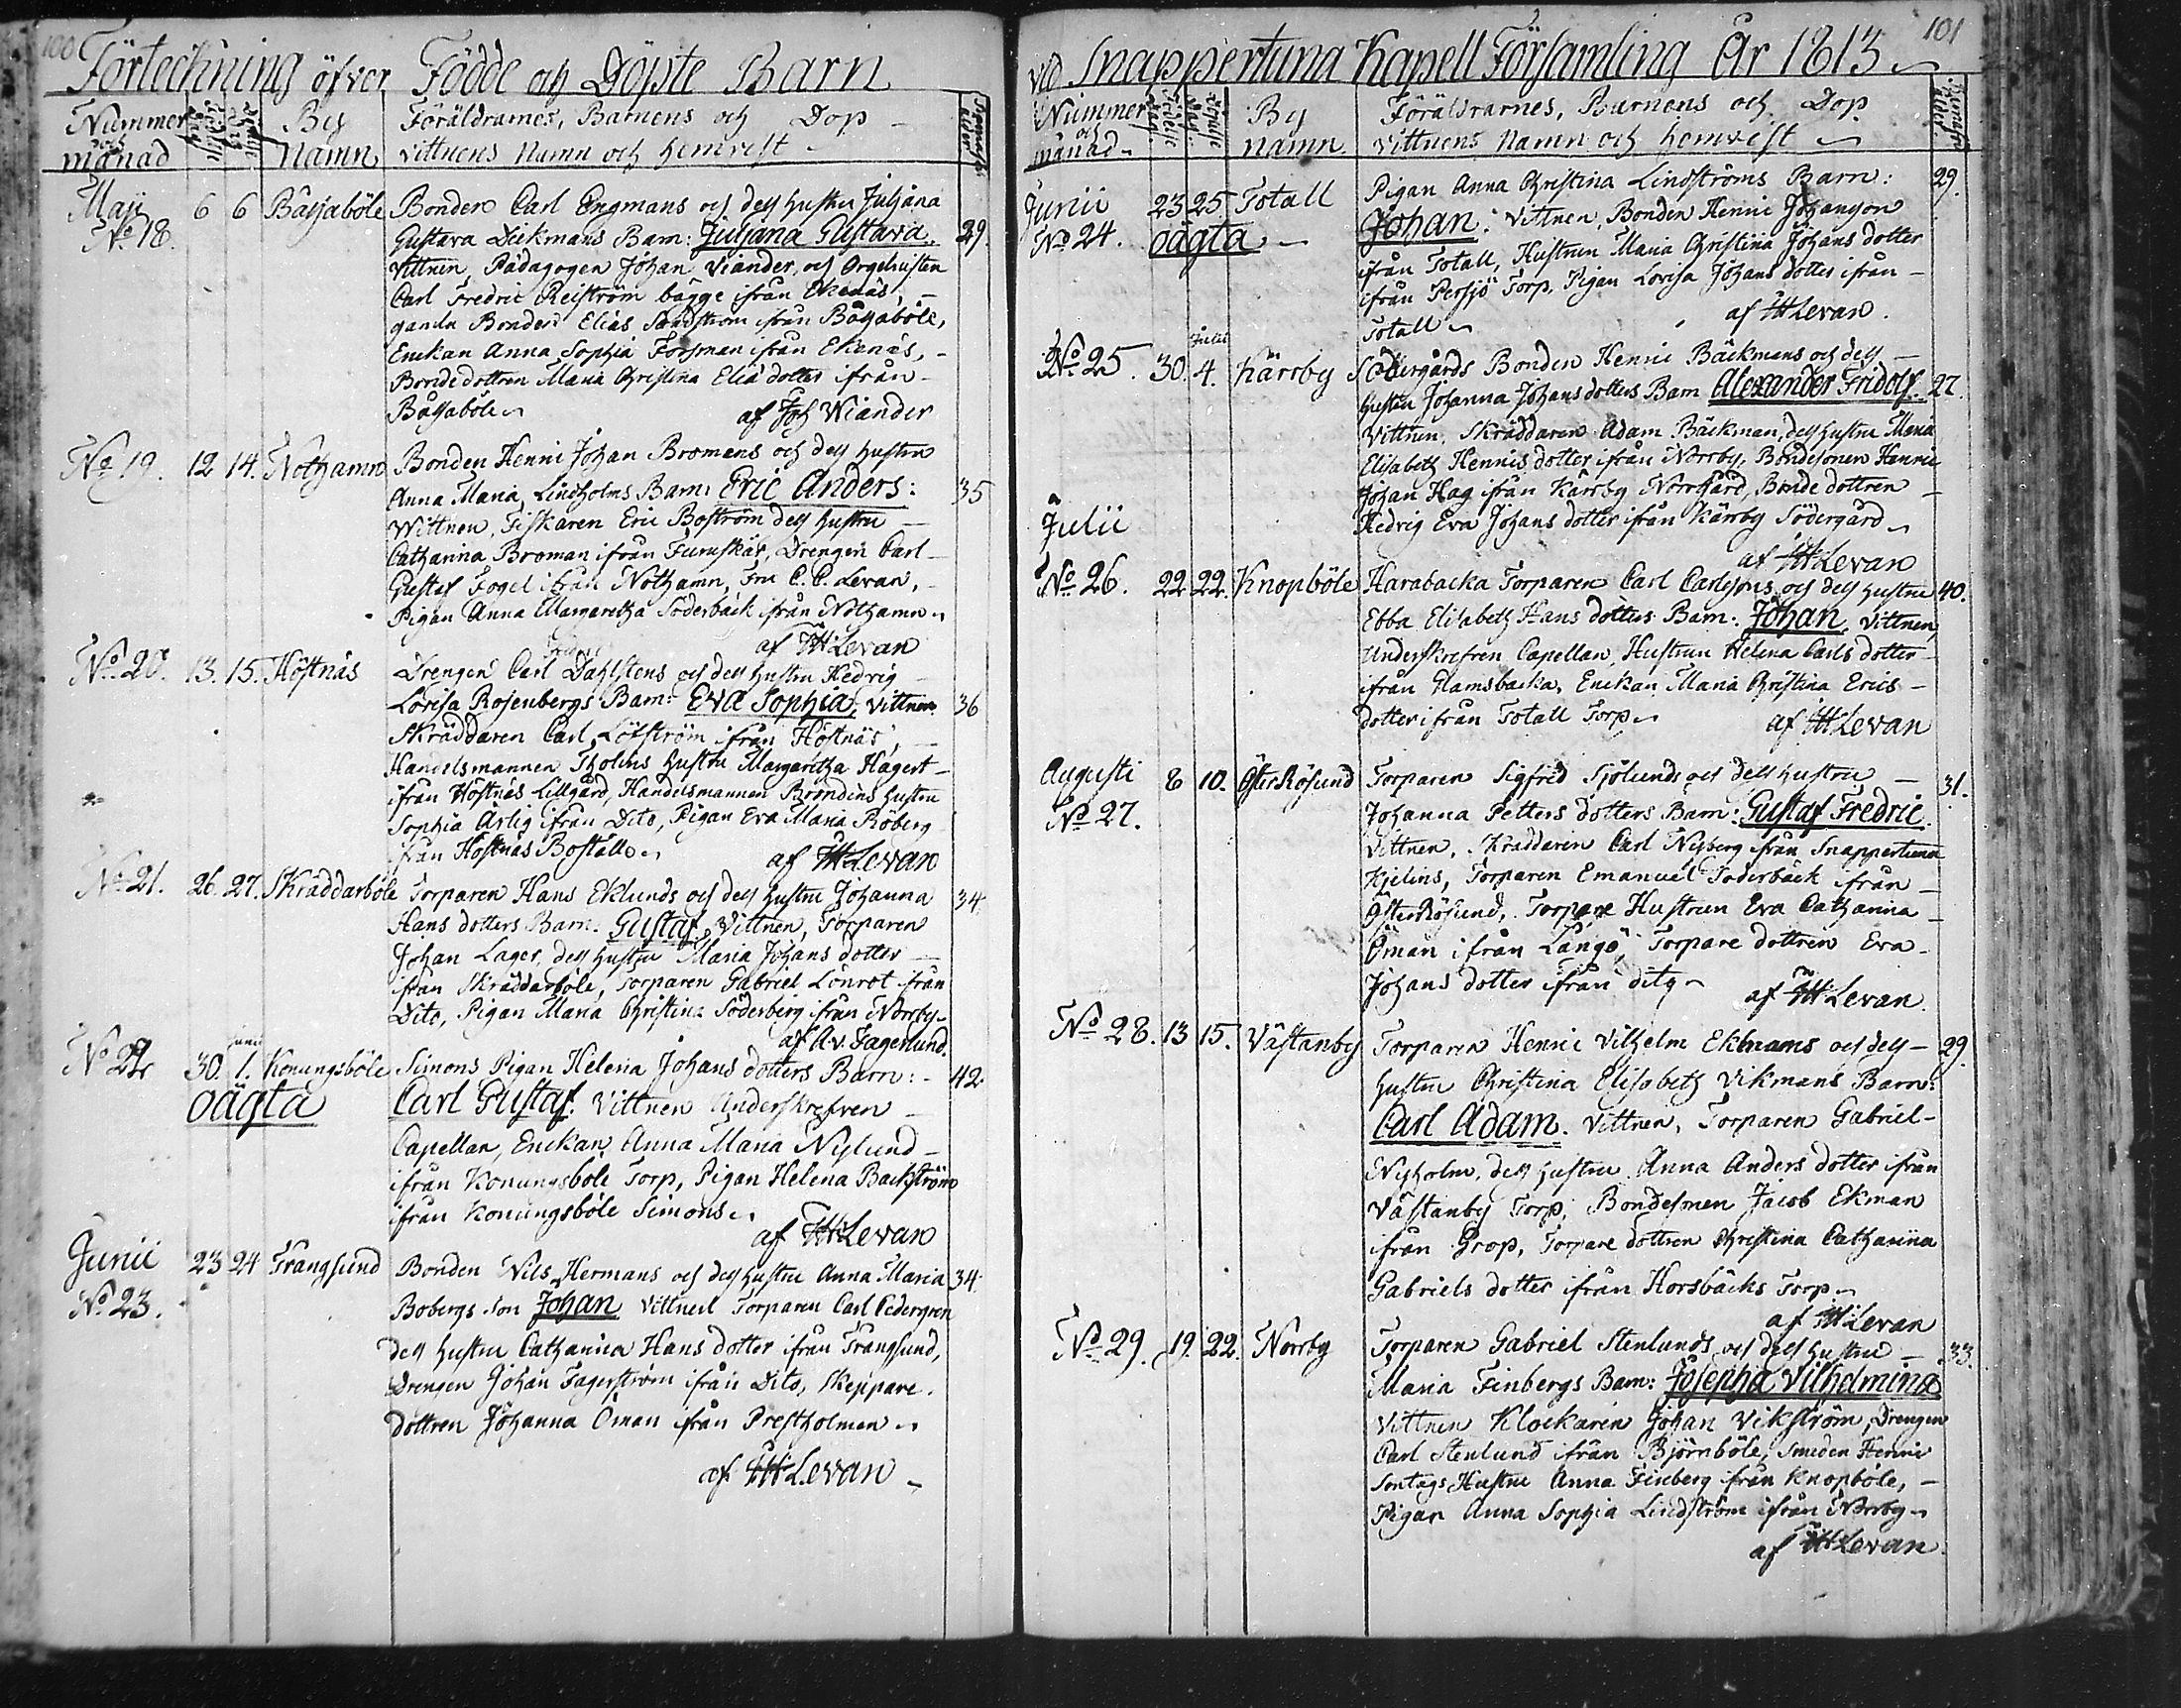 100
Förteckning öfver Födde och Döpte Barn
Nummer och månad
By Namn
Föräldrarnes, Barnens och Dop
vittnens Namn och hemvist
Maji 6 6 Båsaböle Bonden Carl Engmans och dess hustru Juliana
No 18. Gustava Dickmans Barn: Juliana Gustava. 29.
Vittnen, Pädagogen Johan Viander, och Orgelnisten
Carl Fredric Reiström bägge ifrån Ekenäs,
gamla Bonden Elias Sandström ifrån Båsaböle,
Enckan Anna Sophia Forsman ifrån Ekenäs,
Bondedottren Maria Christina Eliä dotter ifrån
Båsaböle
af Joh Wiander
No 19. 12 14. Nothamn Bonden Henric Johan Bromans och dess hustru
Anna Maria Lindholms Barn: Eric Anders: 35
Wittnen, Fiskaren Eric Boström dess hustru
Catharina Broman ifrån Furuskär, Drengen Carl
Gustaf Fogel ifrån Nothamn, Fru C. C. Levan,
Pigan Anna Margaretha Söderbäck ifrån Nothamn
af HLevan
No 20. 13. 15. Höstnäs Drengen Carl Dahlstens och dess hustru Hedvig
Lovisa Rosenbergs Barn: Eva Sophia, vittnen 36
Skräddaren Carl Löfström ifrån Höstnäs,
Handelsmannen Tholins hustru Margaretha Hagert
ifrån Höstnäs Lillgård, Handelsmannen Brondins hustru
Sophia Ärlig ifrån Dito, Pigan Eva Maria Röberg
ifrån Höstnäs Boställe
af HLevan
No 21. 26. 27. Skräddarböle Torparen Hans Eklunds och dess hustru Johanna 34.
Hans dotters Barn: Gustaf, Vittnen, Torparen
Johan Lager, dess hustru Maria Johans dotter
ifrån Skräddarböle, Torparen Gabriel Lönrot ifrån
Dito, Pigan Maria Christina Söderberg ifrån Norrby
af A.v. Fagerlund.
No 22 30. 1. Konungsböle Simons Pigan Helena Johans dotters Barn: 42.
oägta Carl Gustaf. Vittnen Underskrefven
Capellan, Enckan Anna Maria Nylund
ifrån Konungsböle Torp, Pigan Helena Backström
ifrån Konungsböle Simons.
af HLevan
Junii 23 24 Trangsund Bonden Nils Hermans och dess hustru Anna Maria 34.
No 23. Bobergs son Johan vittnen Torparen Carl Cedergren
dess hustru Catharina Hans dotter ifrån Trangsund,
Drengen Johan Fagerström ifrån Dito, Skeppare
dottren Johanna Öman ifrån Prestholmen
af HLevan
101
vid Snappertuna Kapell Församling År 1813
Nummer och månad
By namn.
Föräldrarnes, Barnens och Dop
vittnens Namn och hemvist
Junii 23 25 Totall Pigan Anna Christina Lindströms Barn: 29.
No 24. oägta Johan. Vittnen, Bonden Henric Johansson
ifrån Totall, Hustrun Maria Christina Johans dotter
ifrån Persjö Torp, Pigan Lovisa Johans dotter ifrån
Totall
af HLevan.
Julii
No 25. 30. 4. Kärrby Södergårds Bonden Henric Bäckmans och dess
hustru Johanna Johans dotters Barn Alexander Fridolf. 27.
Vittnen, Skräddaren Adam Bäckman, dess hustru Maria
Elisabeth Henrics dotter ifrån Norrby, Bondesonen Henric
Johan Hag ifrån Kärrby Norrgård, Bonde dottren
Hedvig Eva Johans dotter ifrån Kärrby Södergård
Julii
af HLevan
No 26. 22. 22. Knopböle Harabacka Torparen Carl Carlssons och dess hustru 40.
Ebba Elisabeth Hans dotters Barn: Johan, Vittnen,
Underskrefven Capellan, Hustrun Helena Carls dotter
ifrån Hamsbacka, Enckan Maria Christina Erics
dotter ifrån Totall Torp
af HLevan
Augusti 8 10. Öster Rösund Torparen Sigfrid Sjölunds och dess hustru 31.
No 27. Johanna Petters dotters Barn: Gustaf Fredric.
Vittnen, Skräddaren Carl Nyberg ifrån Snappertuna
Kjelins, Torparen Emanuel Söderbäck ifrån
Öster Rösund, Torpare Hustrun Eva Catharina
Öman ifrån Långö, Torpare dottren Eva
Johans dotter ifrån dito
af HLevan.
No 28. 13 15. Västanby Torparen Henric Vilhelm Ekmans och dess 29.
hustru Christina Elisabeth Vikmans Barn:
Carl Adam. Vittnen, Torparen Gabriel
Nyholm, dess hustru Anna Anders dotter ifrån
Västanby Torp, Bondesonen Jacob Ekman
ifrån Grop, Torpare dottren Christina Catharina
Gabriels dotter ifrån Horsbäcks Torp
af HLevan
No 29. 19. 22. Norrby Torparen Gabriel Stenlunds och dess hustru 33.
Maria Finbergs Barn: Josepha Vilhelmina
Vittnen Klockaren Johan Vikström, Drengen
Carl Stenlund ifrån Björnböle, Smeden Henric
Sontags Hustru Anna Finberg ifrån Knopböle,
Pigan Anna Sophia Lindström ifrån Norrby
af HLevan